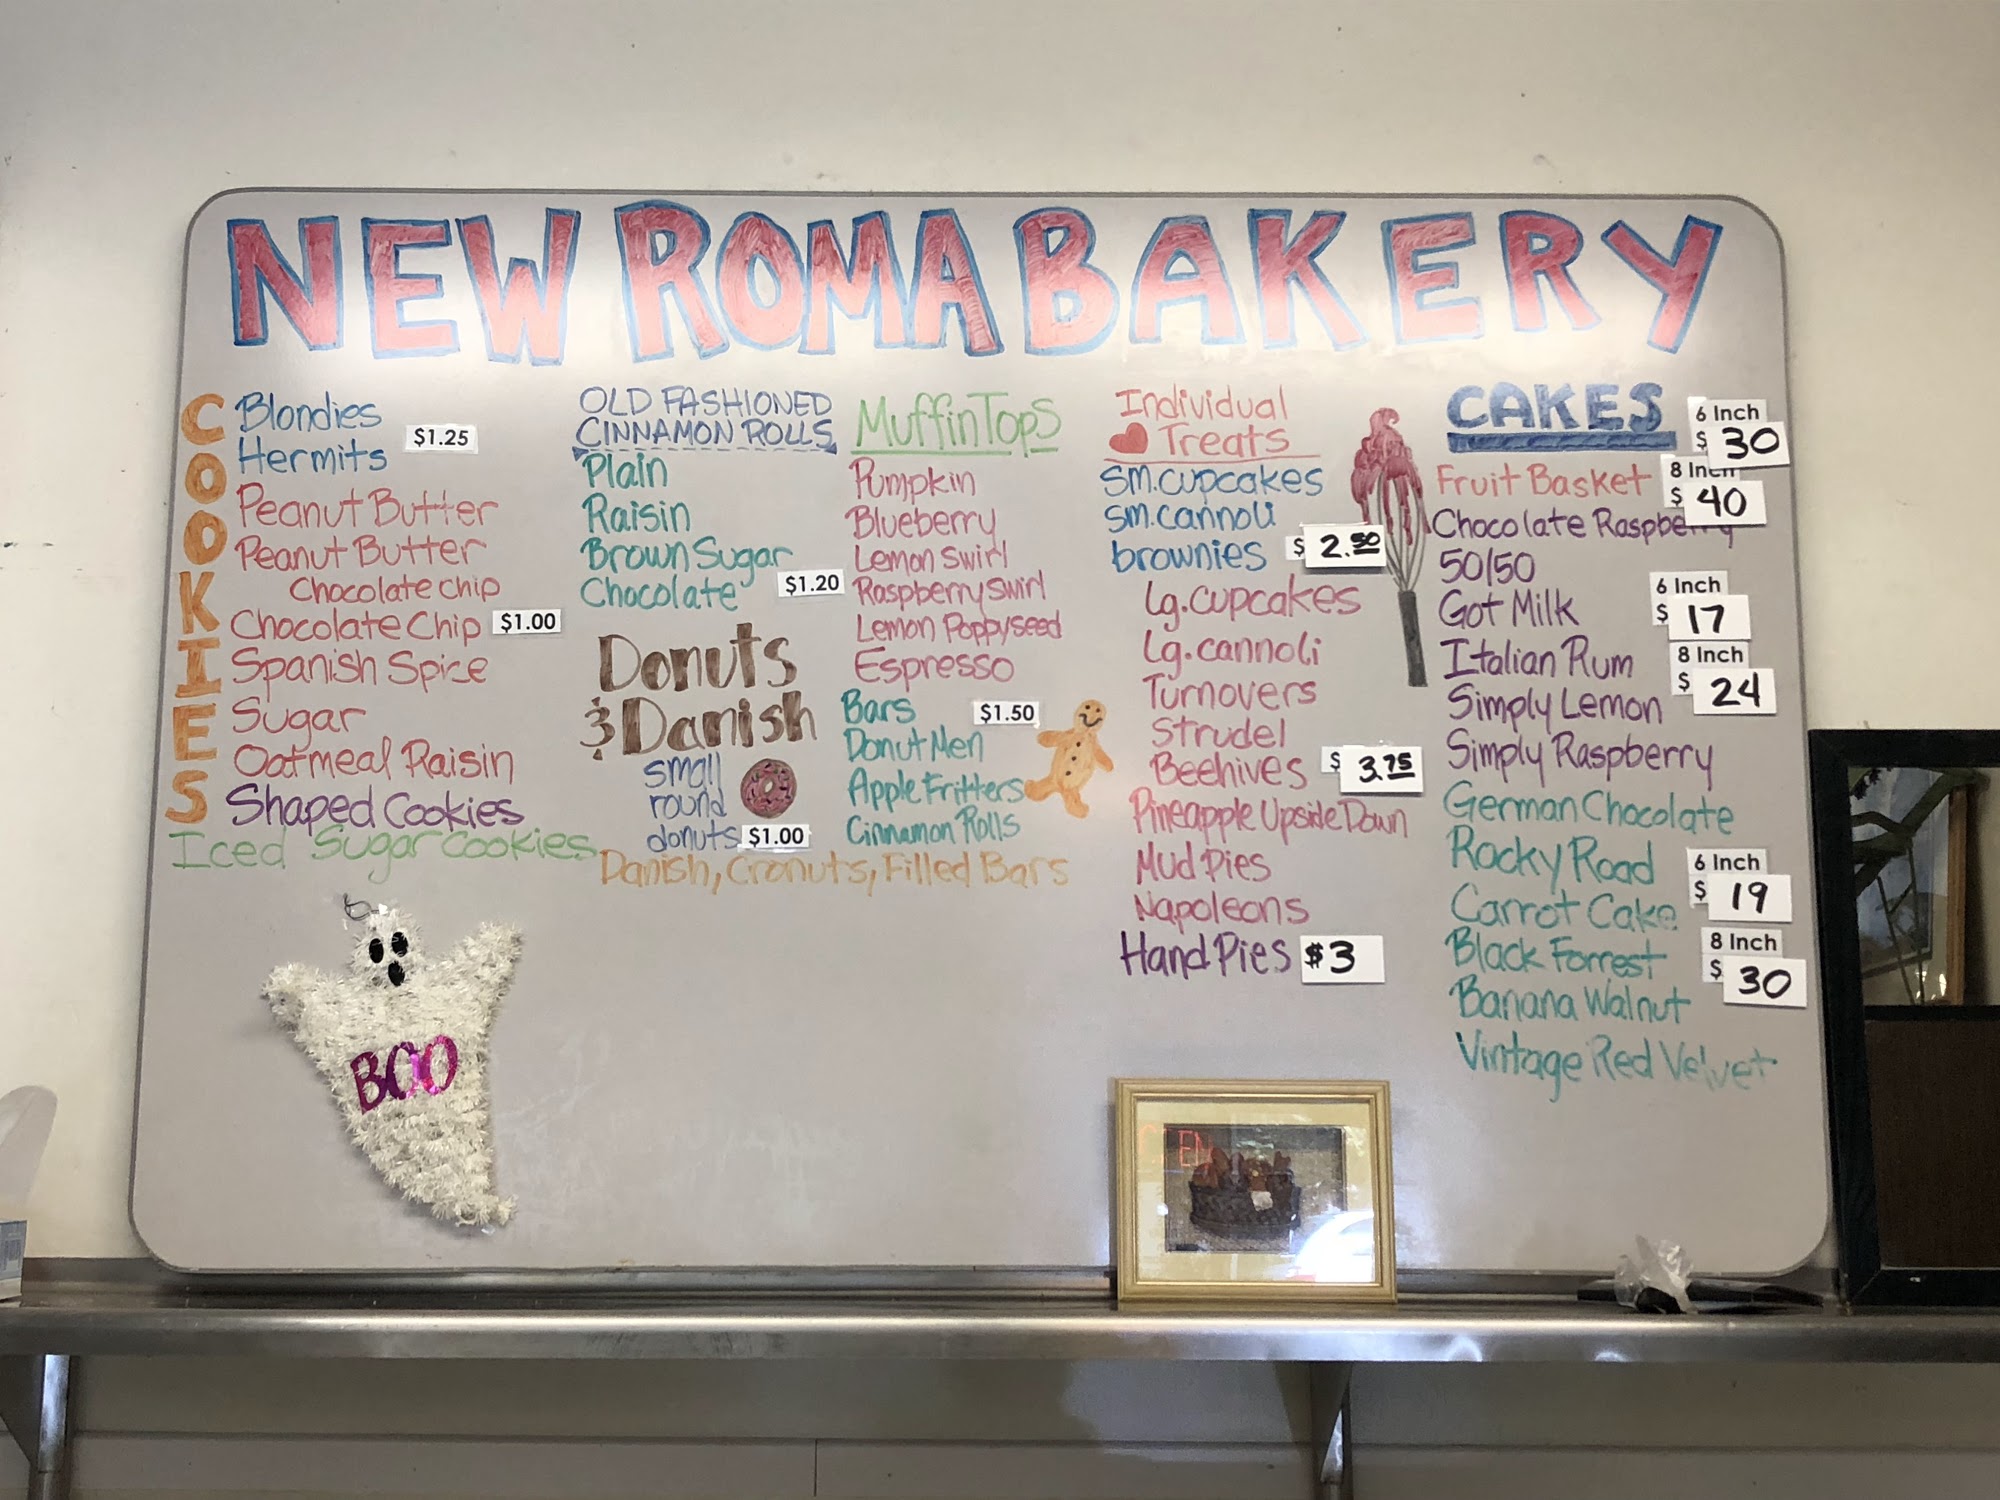 NEW ROMA BAKERY
COOKIES
Blondies
Hermits $1.25
Peanut Butter
Peanut Butter
Chocolate Chip
Chocolate Chip $1.00
Spanish Spice
Sugar
Oatmeal Raisin
Shaped Cookies
Iced Sugar Cookies
BOO
OLD FASHIONED
CINNAMON ROLLS
Plain
Raisin
Brown Sugar
Chocolate $1.20
Donuts
& Danish
small
round
donuts $1.00
Danish, Cronuts, Filled Bars
Muffin Tops
Pumpkin
Blueberry
Lemon Swirl
Raspberry Swirl
Lemon Poppyseed
Espresso
Bars $1.50
Donut Men
Apple Fritters
Cinnamon Rolls
Individual
Treats
sm.cupcakes
sm.cannoli
brownies $2.50
Lg.cupcakes
Lg.cannoli
Turnovers
Strudel
Beehives $3.75
Pineapple Upside Down
Mud Pies
Napoleons
Hand Pies $3
CAKES
6 Inch
$ 30
Fruit Basket 8 Inch
$ 40
Chocolate Raspberry
50/50
6 Inch
Got Milk $ 17
Italian Rum 8 Inch
$ 24
Simply Lemon
Simply Raspberry
German Chocolate
Rocky Road 6 Inch
$ 19
Carrot Cake
Black Forrest 8 Inch
$ 30
Banana Walnut
Vintage Red Velvet